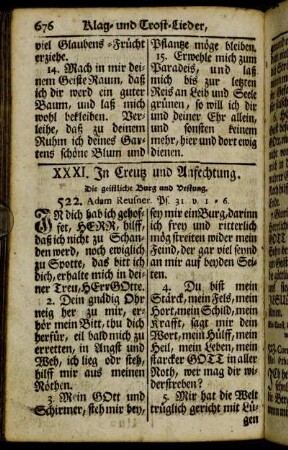 676 Klag- und Trost-Lieder,
viel Glaubens-Frücht
erziehe.
14. Mach in mir dei-
nem Geiste Raum, daß
ich dir werd ein guter
Baum, und laß mich
wohl bekleiben. Ver-
leihe, daß zu deinem
Ruhm ich deines Gar-
tens schöne Blum und
Pflantze möge bleiben.
15. Erwehle mich zum
Paradeis, und laß
mich bis zur letzten
Reis an Leib und Seele
grünen, so will ich dir
und deiner Ehr allein,
und sonsten keinem
mehr, hier und dort ewig
dienen.
XXXI. In Creutz und Anfechtung.
Die geistliche Burg und Vestung.
522. Adam Reusner. Ps. 31. v. 1-6.
IN dich hab ich gehof-
fet, HERR, hilff,
daß ich nicht zu Schan-
den werd, noch ewiglich
zu Spotte, das bitt ich
dich, erhalte mich in dei-
ner Treu, HErr GOtte.
2. Dein gnädig Ohr
neig her zu mir, er-
hör mein Bitt, thu dich
herfür, eil bald mich zu
erretten, in Angst und
Weh, ich lieg odr steh,
hilff mir aus meinen
Nöthen.
3. Mein GOtt und
Schirmer, steh mir bey,
sey mir ein Burg, darinn
ich frey und ritterlich
mög streiten wider mein
Feind, der gar viel seyn
an mir auf beyden Sei-
ten.
4. Du bist mein
Stärck, mein Fels, mein
Hort, mein Schild, mein
Krafft, sagt mir dein
Wort, mein Hülff, mein
Heil, mein Leben, mein
starcker GOTT in aller
Noth, wer mag dir wi-
derstreben?
5. Mir hat die Welt
trüglich gericht mit Lü-
gen